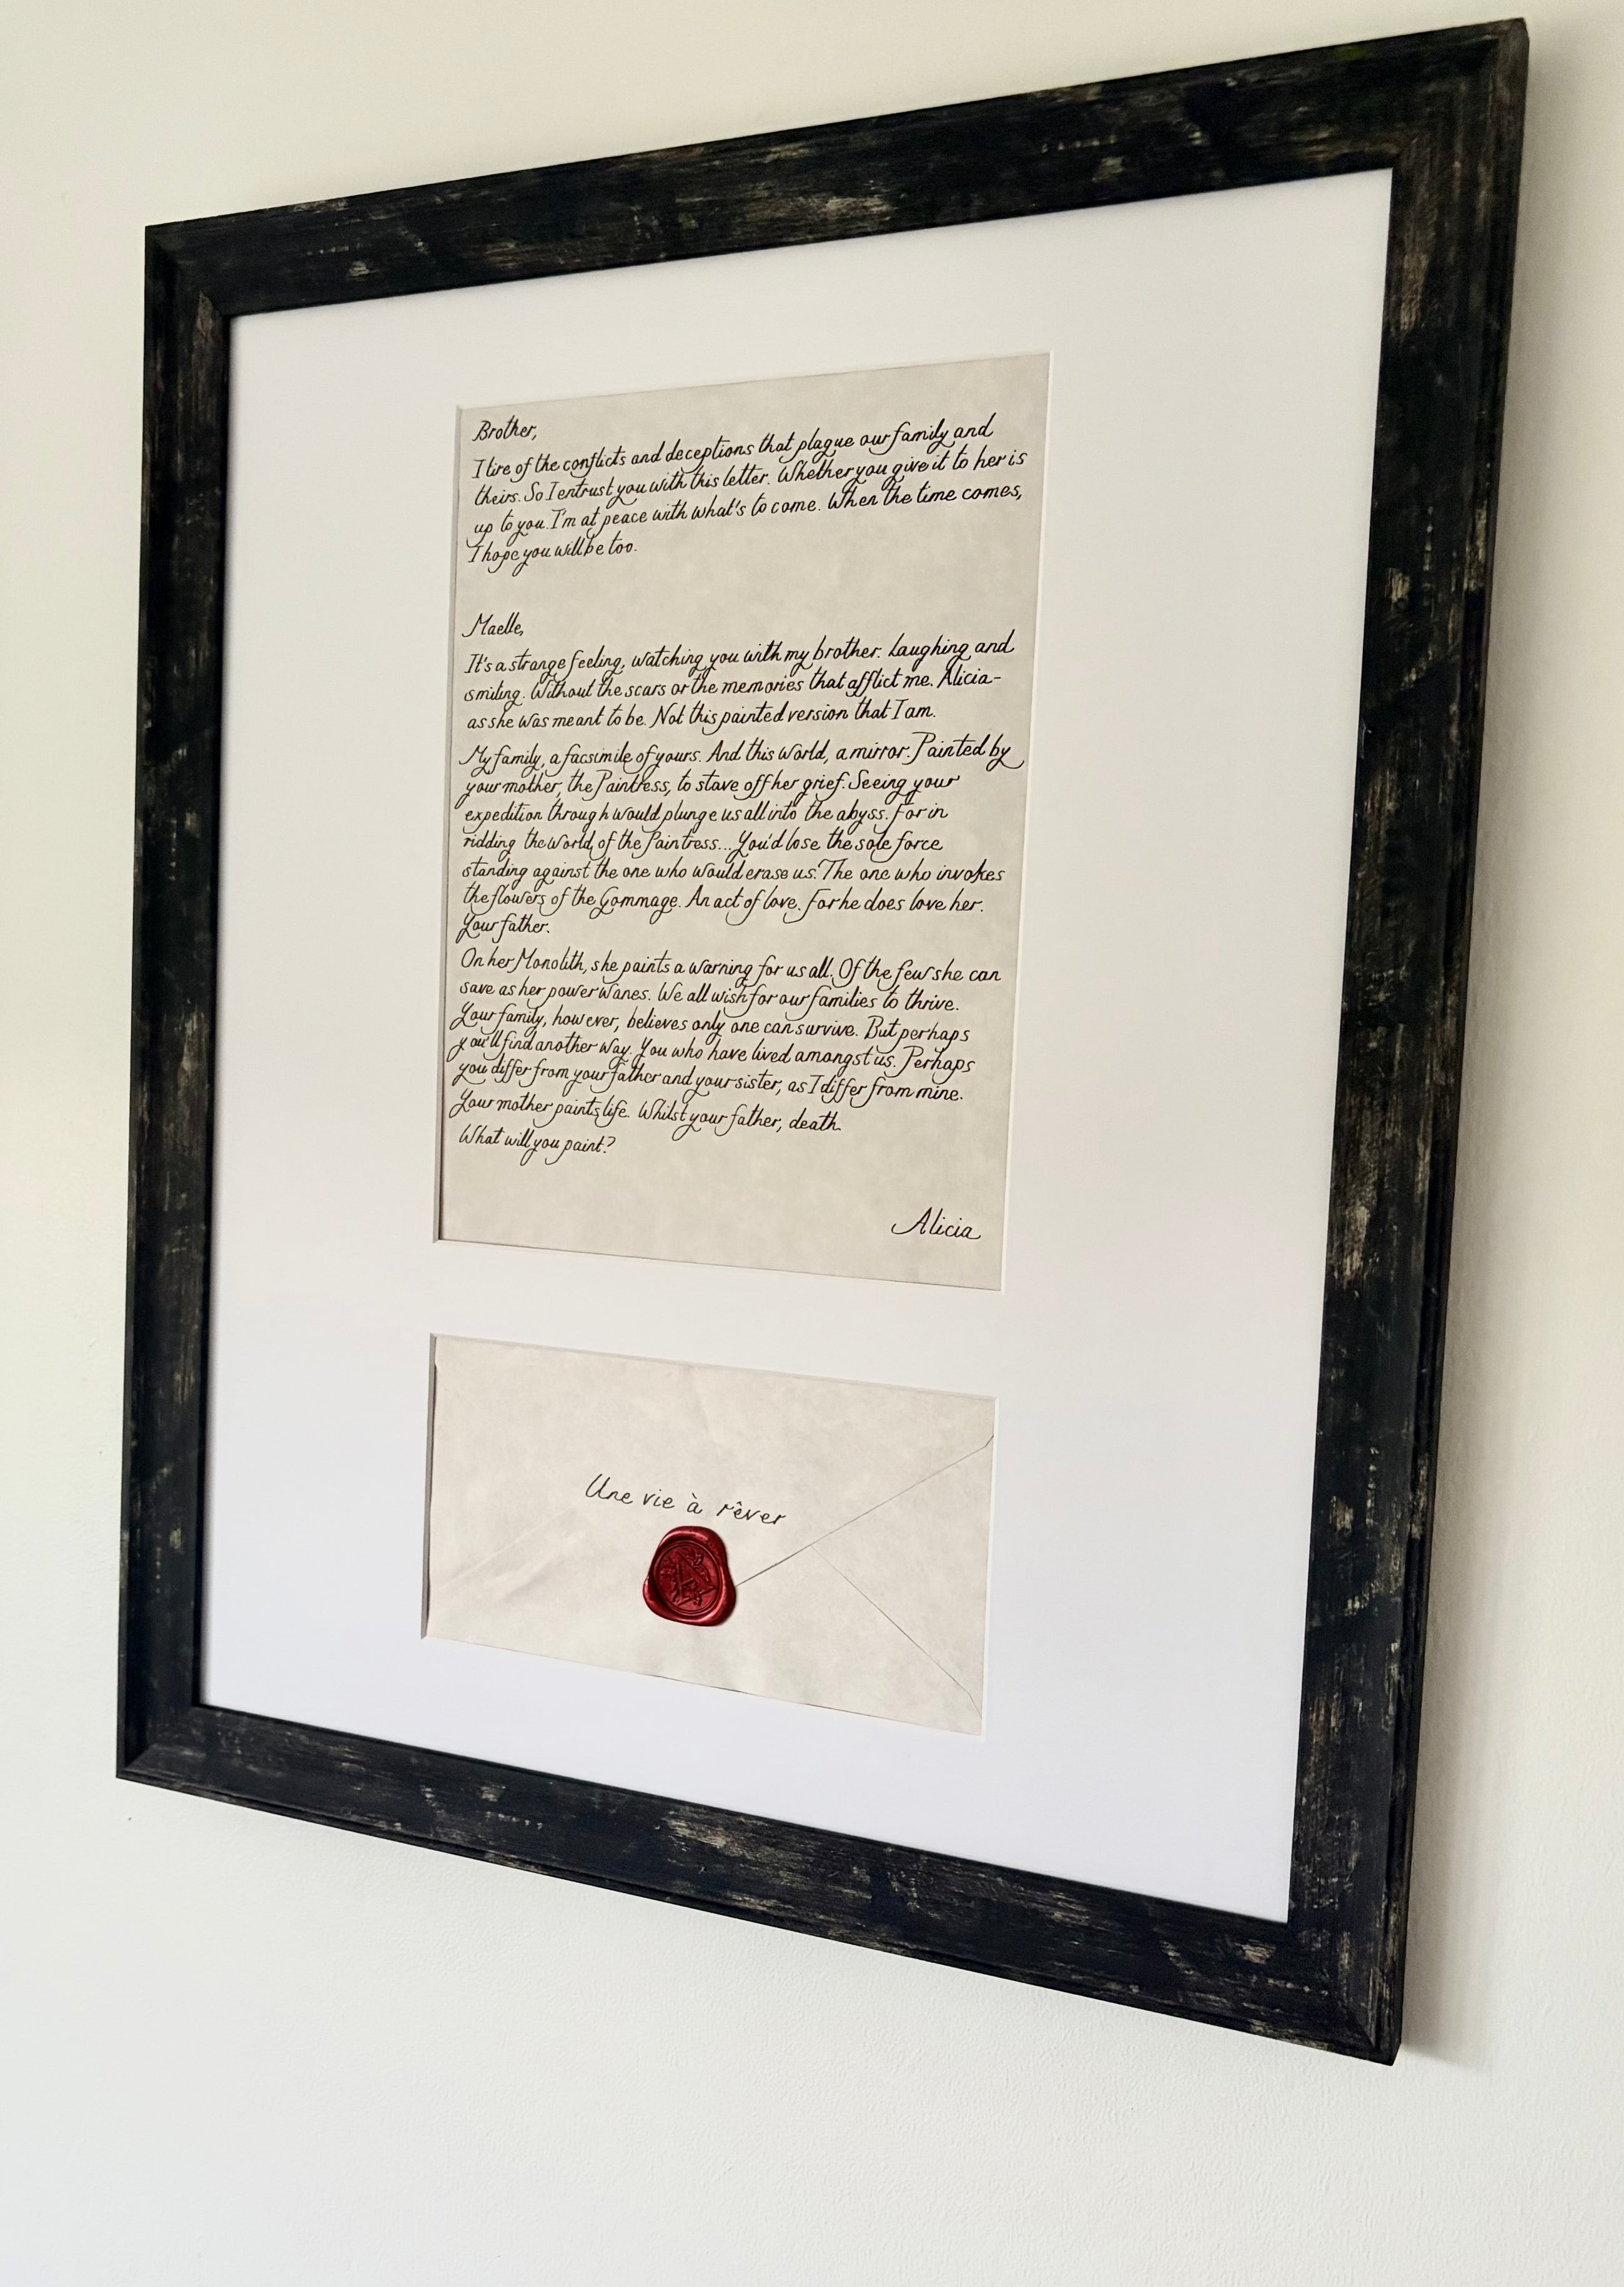 Brother,
I tire of the conflicts and deceptions that plague our family and
theirs. So I entrust you with this letter. Whether you give it to her is
up to you. I'm at peace with what's to come. When the time comes,
I hope you will be too.
Maelle,
It's a strange feeling, watching you with my brother. Laughing and
smiling. Without the scars or the memories that afflict me. Alicia-
as she was meant to be. Not this painted version that I am.
My family, a facsimile of yours. And this world, a mirror. Painted by
your mother, the Paintress, to stave off her grief. Seeing your
expedition through would plunge us all into the abyss. For in
ridding the world of the Paintress... You'd lose the sole force
standing against the one who would erase us. The one who invokes
the flowers of the Gommage. An act of love. For he does love her.
Your father.
On her Monolith, she paints a warning for us all. Of the few she can
save as her power wanes. We all wish for our families to thrive.
Your family, however, believes only one can survive. But perhaps
you'll find another way. You who have lived amongst us. Perhaps
you differ from your father and your sister, as I differ from mine.
Your mother paints life. Whilst your father, death.
What will you paint?
Alicia
Une vie à rêver